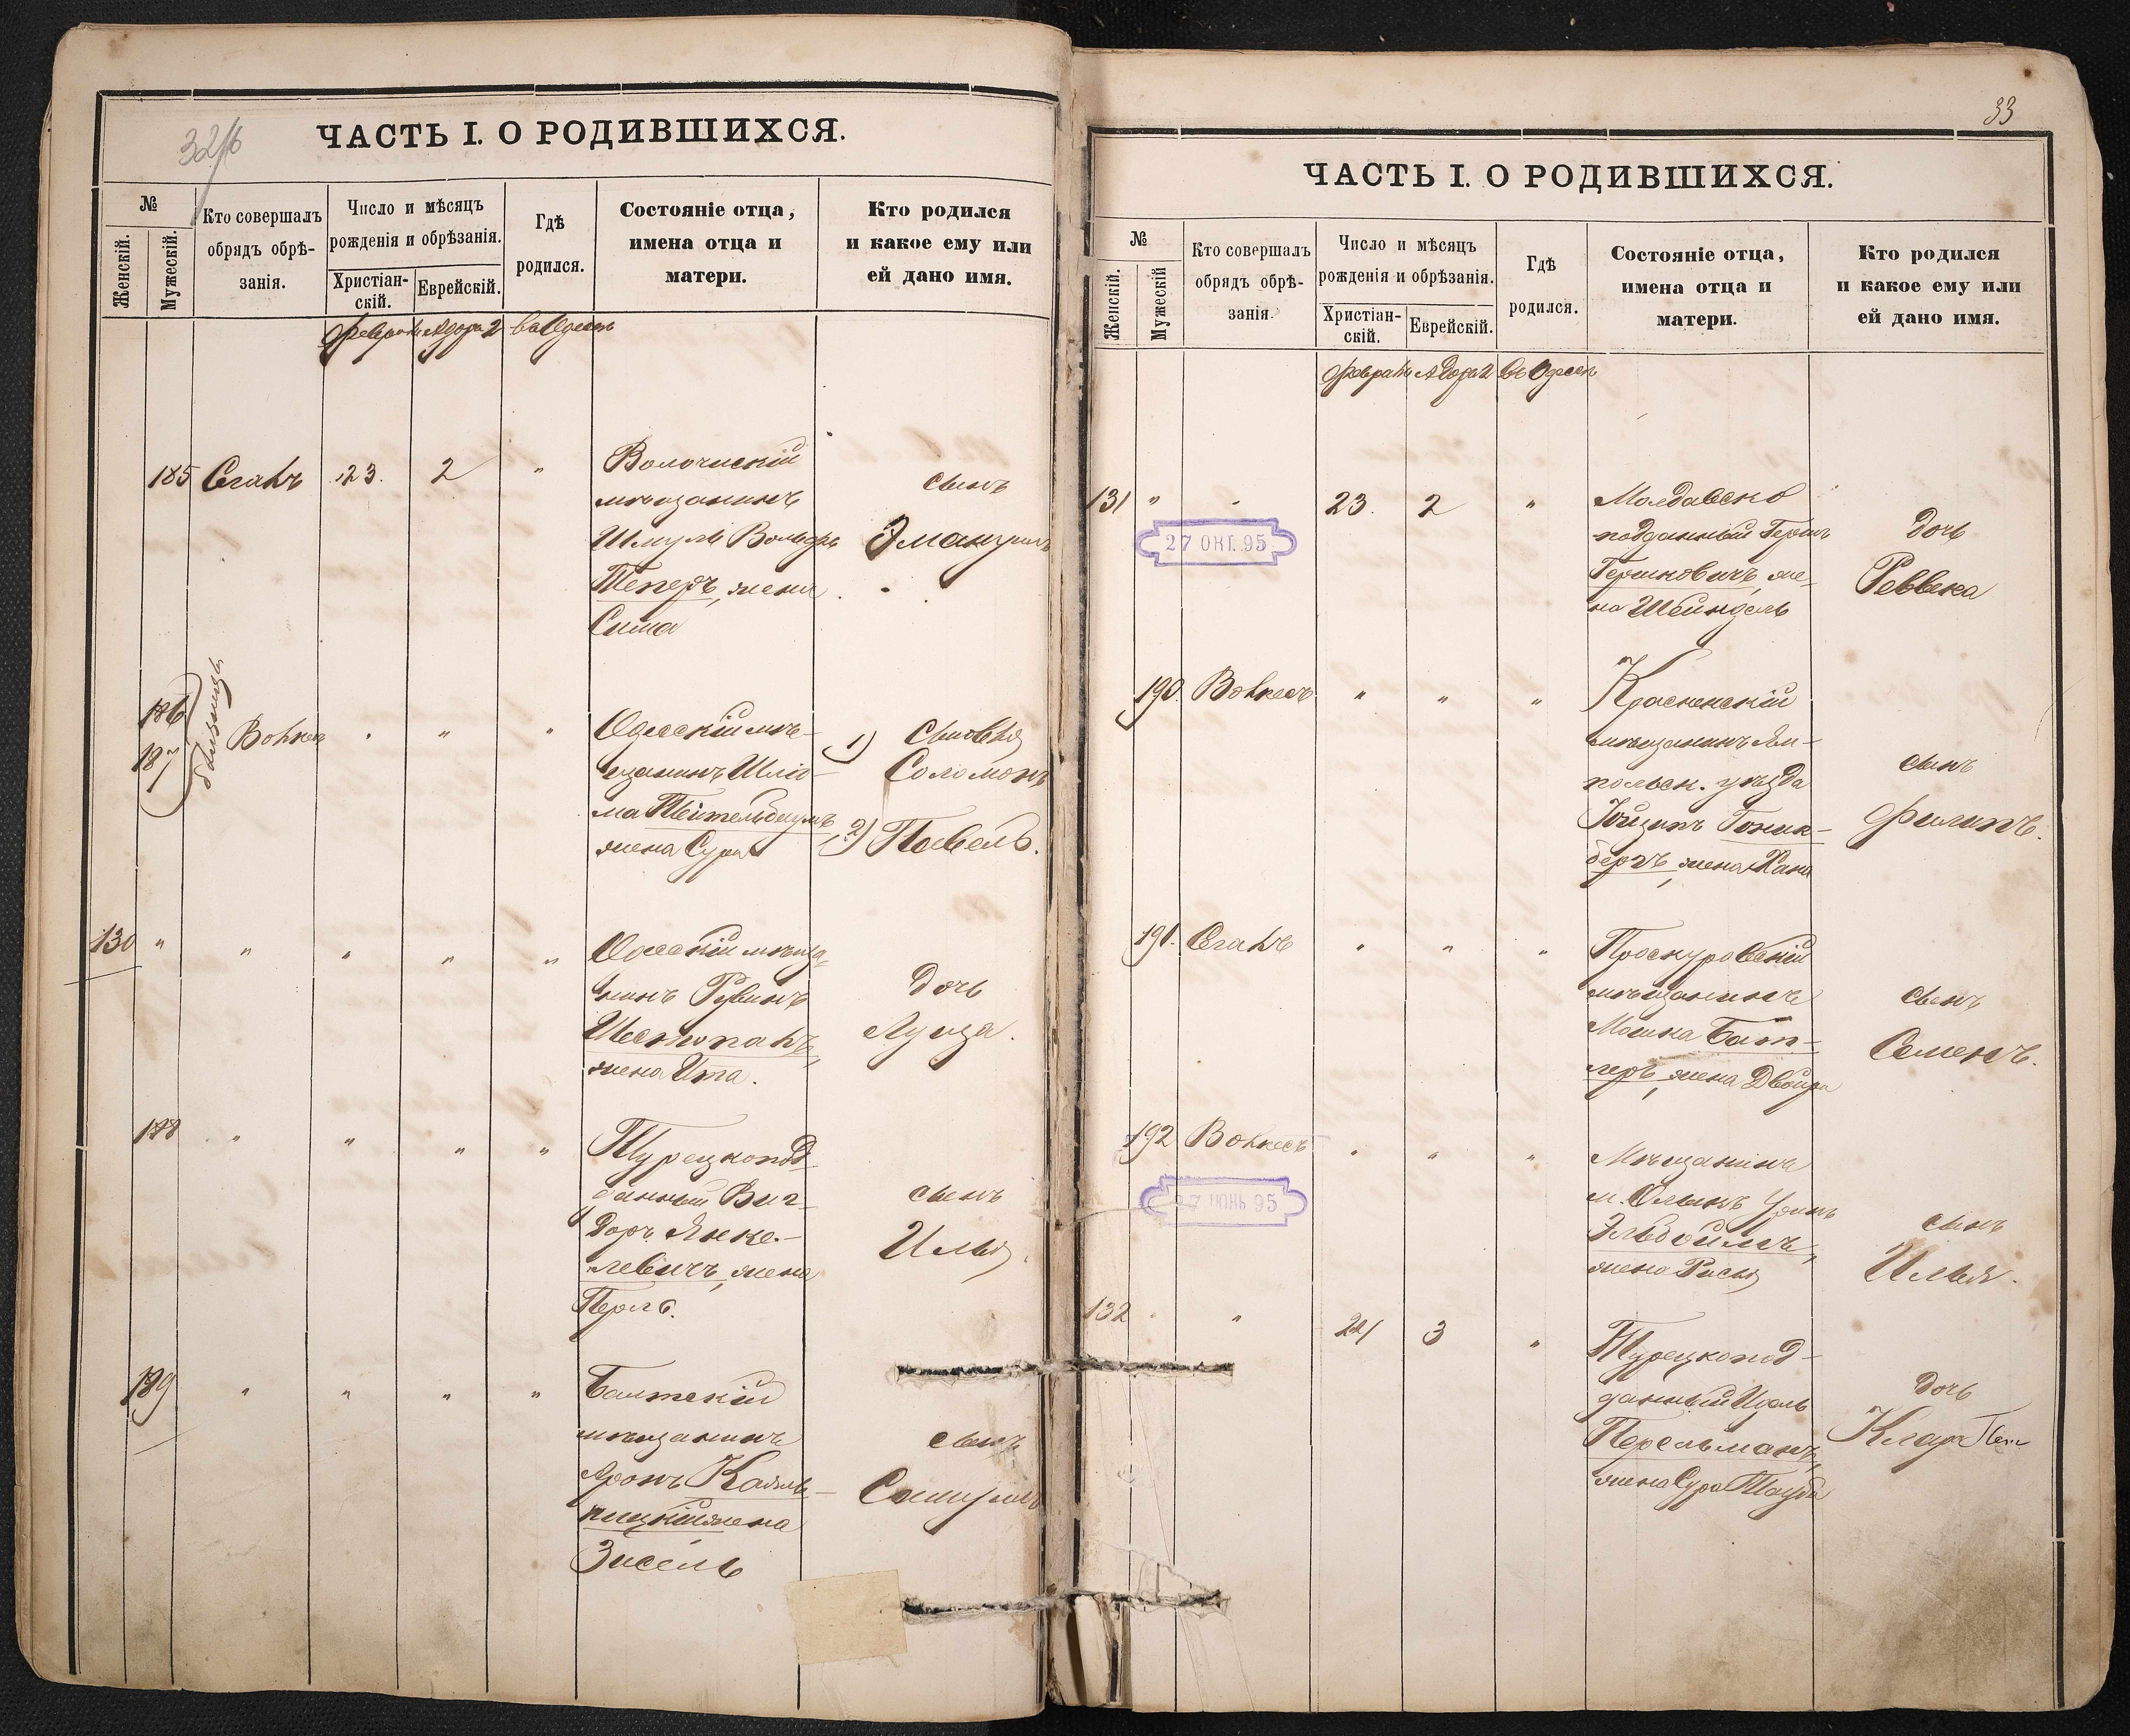 32/б
ЧАСТЬ I. О РОДИВШИХСЯ.
№
Женскій.
Мужескій.
Кто совершалъ
обрядъ обрѣ-
занія.
Число и мѣсяцъ
рожденія и обрѣзанія.
Христіан-
скій.
Еврейскій.
Гдѣ
родился.
Состояніе отца,
имена отца и
матери.
Кто родился
и какое ему или
ей дано имя.
Адора 2
185
Сегалъ
23.
2
"
мѣщанинъ
Шмуль Вольфъ
Теперъ, жена
Сима
сынъ
Эмануилъ
186
187
близнецы
"
"
Одесскій мѣ-
щанинъ Шлio-
ма Тейтельбаумъ
жена Сура
1) Сыновья
Соломонъ
2) Павелъ.
130
"
"
"
"
"
Одесскій мѣща-
нинъ Рувинъ
жена Ита.
дочь
Луиза.
188
"
"
"
"
Турецкопод-
данный Виг-
доръ Янке-
левичъ, жена
Перль.
сынъ
Илья
189
"
"
"
"
Балтскій
мѣщанинъ
Аронъ
жена
Зисель
сынъ
Самуилъ
33
ЧАСТЬ I. О РОДИВШИХСЯ.
№
Женскій.
Мужескій
Кто совершалъ
обрядъ обрѣ-
занія.
Число и мѣсяцъ
рожденія и обрѣзанія.
Христіан-
скій.
Еврейскій.
Гдѣ
родился.
Состояніе отца,
имена отца и
матери.
Кто родился
и какое ему или
ей дано имя.
Адора 2
въ Одессѣ
131
"
"
23.
2
"
27 ОКТ. 95
Молдавско
подданный Гершъ
Гершковичъ, же-
на Шейндель
дочь
Реввека
190.
"
"
"
мѣщанинъ Ям-
польск. уѣзда
Гоник-
бергъ, жена Хана
сынъ
Филипъ.
191.
Сегалъ
"
"
"
Проскуровскій
мѣщанинъ
Мошка Бат-
леръ, жена Двойра
сынъ
Семенъ.
192
"
"
"
27 ІЮНЬ 95
Мѣщанинъ
жена Рися
сынъ
Илья.
132
"
24
3
"
Турецкопод-
данный
Перельманъ,
жена Сура
дочь